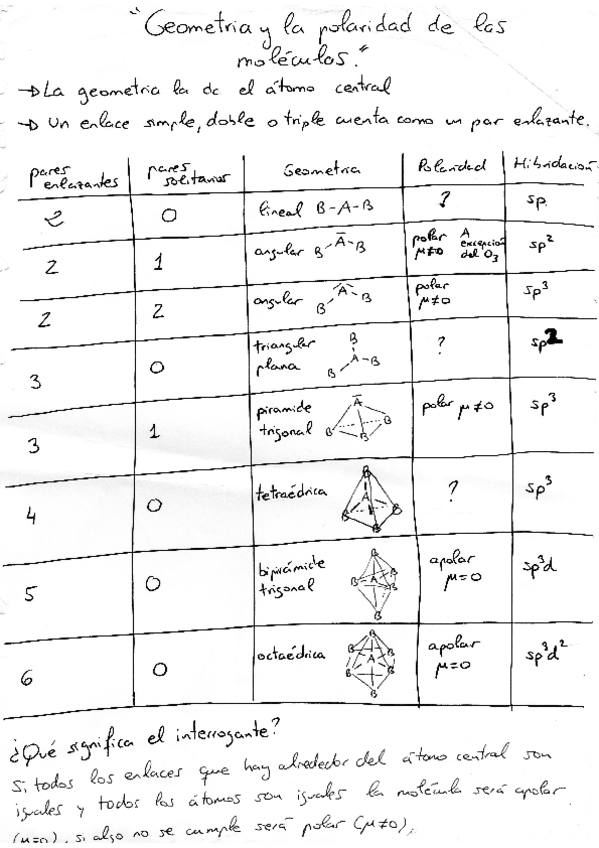 "Geometria y la polaridad de las
moléculas."
→ La geometria la da el átomo central
→ Un enlace simple, doble o triple cuenta como un par enlazante.
pares enlazantes | pares solitarios | Geometria | Polaridad | Hibridación
2 | 0 | lineal B-A-B | ? | sp
2 | 1 | angular B A B | polar μ≠0 A excepción del O3 | sp2
2 | 2 | angular B A B | polar μ≠0 | sp3
3 | 0 | triangular plana B A B B | ? | sp2
3 | 1 | piramide trigonal A B B B | polar μ≠0 | sp3
4 | 0 | tetraédrica B A B B B | ? | sp3
5 | 0 | bipirámide trigonal B A B B B B | apolar μ=0 | sp3d
6 | 0 | octaédrica B B B A B B B | apolar μ=0 | sp3d2
¿Qué significa el interrogante?
Si todos los enlaces que hay alrededor del átomo central son
iguales y todos los átomos son iguales la molécula será apolar
(μ=0), si algo no se cumple será polar (μ≠0).